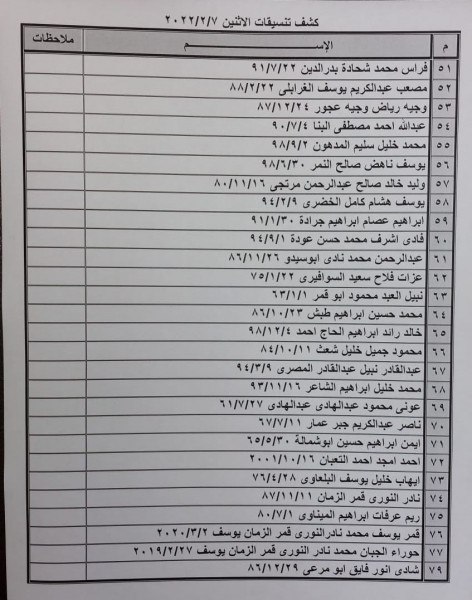 كشف تنسيقات الاثنين ٢٠٢٢/٢/٧
م الإســـم ملاحظات
٥١ فراس محمد شحادة بدرالدين ٩١/٧/٢٢
٥٢ مصعب عبدالكريم يوسف الغرابلي ٨٨/٢/٢٢
٥٣ وجيه رياض وجيه عجور ٨٧/١٢/٢٤
٥٤ عبدالله احمد مصطفى البنا ٩٠/٧/٤
٥٥ محمد خليل سليم المدهون ٩٨/٩/٢
٥٦ يوسف ناهض صالح النمر ٩٨/٦/٣٠
٥٧ وليد خالد صالح عبدالرحمن مرتجى ٨٠/١١/١٦
٥٨ يوسف هشام كامل الخضرى ٩٤/٢/٩
٥٩ ابراهيم عصام ابراهيم جرادة ٩١/١/٣٠
٦٠ فادى اشرف محمد حسن عودة ٩٤/٩/١
٦١ عبدالرحمن محمد نادى ابوسيدو ٨٦/١١/٢٦
٦٢ عزات فلاح سعيد السوافيرى ٧٥/١/٢٢
٦٣ نبيل العبد محمود ابو قمر ٦٣/١/١
٦٤ محمد حسين ابراهيم طبش ٨٦/١٠/٢٣
٦٥ خالد رائد ابراهيم الحاج احمد ٩٨/١٢/٤
٦٦ محمود جميل خليل شعث ٨٤/١٠/١١
٦٧ عبدالقادر نبيل عبدالقادر المصرى ٩٤/٣/٩
٦٨ محمد خليل ابراهيم الشاعر ٩٣/١١/١٦
٦٩ عونى محمود عبدالهادى عبدالهادى ٦١/٧/٢٧
٧٠ ناصر عبدالكريم جبر عمار ٦٧/٧/١١
٧١ ايمن ابراهيم حسين ابوشمالة ٦٥/٥/٣٠
٧٢ احمد امجد احمد التعبان ٢٠٠١/١٠/١٦
٧٣ ايهاب خليل يوسف البلعاوى ٧٦/٤/٢٨
٧٤ نادر النورى قمر الزمان ٨٧/١١/١١
٧٥ ريم عرفات ابراهيم الميناوى ٨٠/٧/١
٧٦ قمر يوسف محمد نادرالنورى قمر الزمان يوسف ٢٠٢٠/٣/٢
٧٧ حوراء الجبان محمد نادر النورى قمر الزمان يوسف ٢٠١٩/٢/٢٧
٧٩ شادى انور فايق ابو مرعى ٨٦/١٢/٢٩